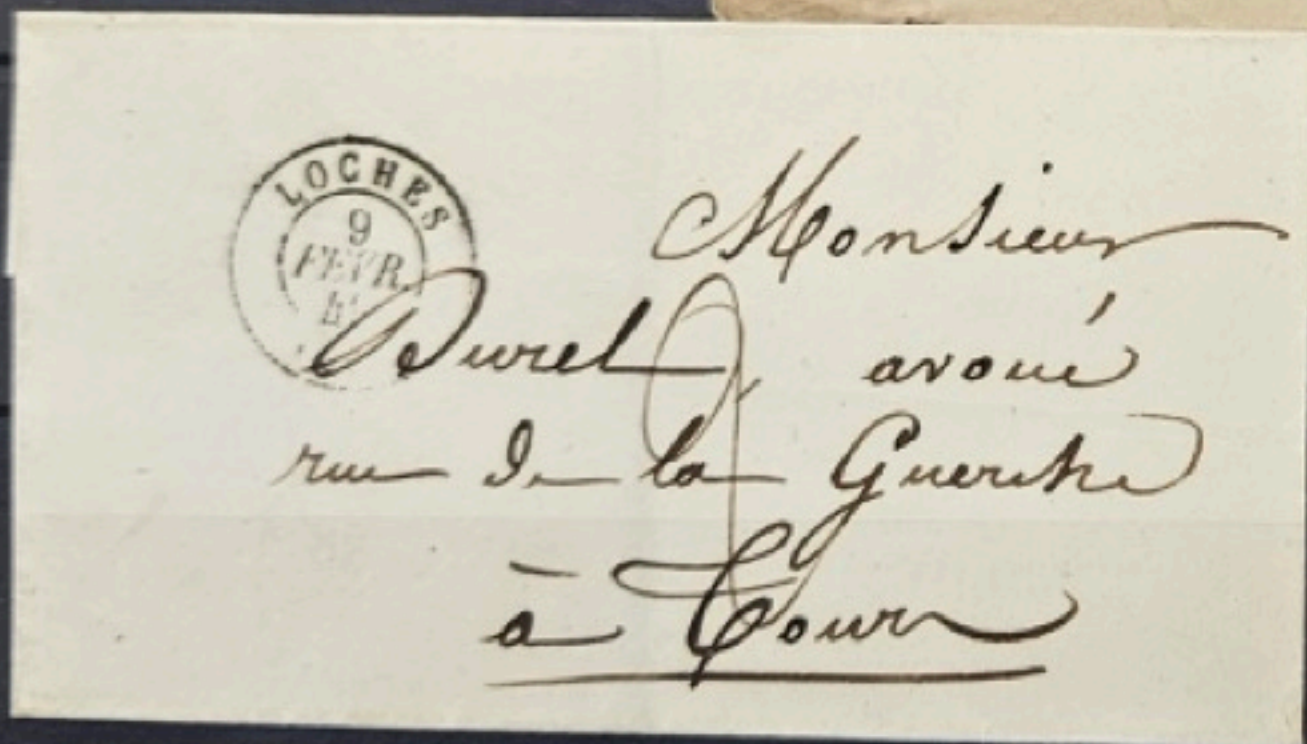 LOCHES
9
FEVR.
Monsieur
Burel avoué
rue de la Guerche
à Tours